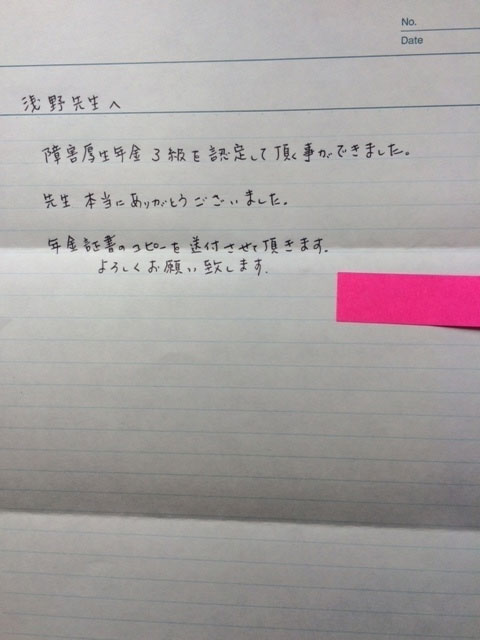 No.
Date
浅野先生へ
障害厚生年金 3級を認定して頂く事ができました。
先生 本当にありがとうございました。
年金証書のコピーを送付させて頂きます.
よろしくお願い致します.